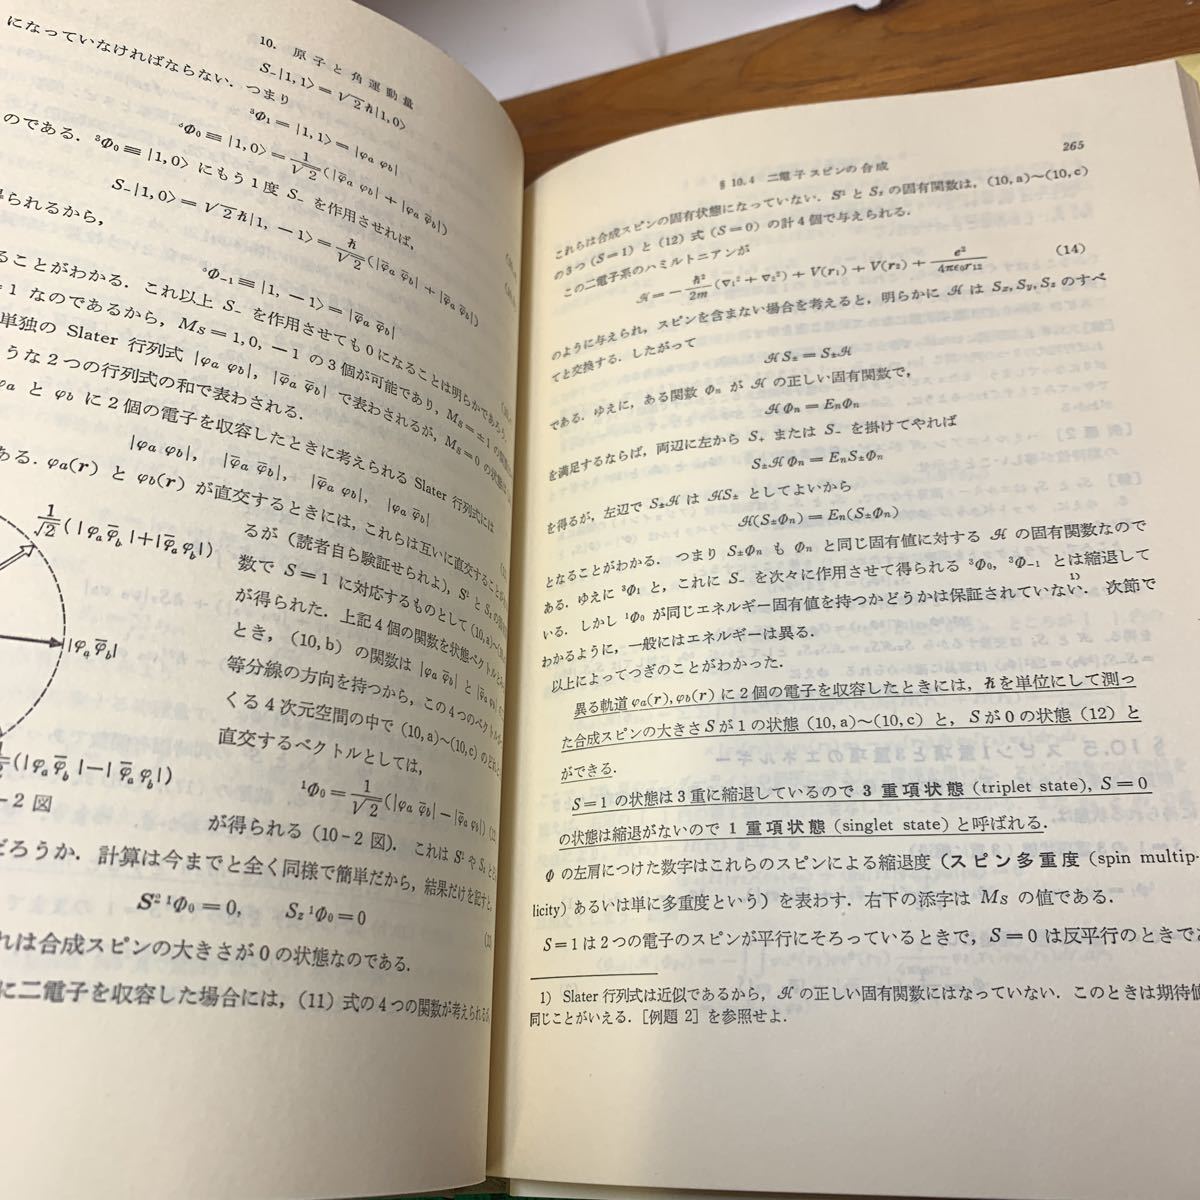 10. 原子と角運動量
になっていなければならない．つまり
S₋|1, 1⟩=√2ℏ|1, 0⟩
³Φ₁≡|1, 1⟩=|φₐ φ_b|
³Φ₀≡|1, 0⟩=1/√2(|φ̄ₐ φ_b|+|φₐ φ̄_b|)
のである．³Φ₀≡|1, 0⟩ にもう1度 S₋ を作用させれば，
S₋|1, 0⟩=√2ℏ|1, −1⟩=
られるから，
³Φ₋₁≡|1, −1⟩=|φ̄ₐ φ̄_b|
ることがわかる．これ以上 S₋ を作用させても0になることは明らかであろう．
1 なのであるから，Mₛ=1, 0, −1 の3個が可能であり，Mₛ=±1 の
単独の Slater 行列式 |φₐ φ_b|, |φ̄ₐ φ̄_b| で表わされるが，Mₛ=0 の状態は
うな2つの行列式の和で表わされる．
φₐ と φ_b に2個の電子を収容したときに考えられる Slater 行列式には
|φₐ φ_b|, |φ̄ₐ φ̄_b|, |φ̄ₐ φ_b|, |φₐ φ̄_b|
ある．φₐ(r) と φ_b(r) が直交するときには，これらは互いに直交することが
1/√2(|φₐ φ̄_b|+|φ̄ₐ φ_b|)
|φₐ φ̄_b|
(|φₐ φ̄_b|−|φ̄ₐ φ_b|)
−2 図
るが（読者自ら験証せられよ），S² と
数で S=1 に対応するものとして (10, a)～
が得られた．上記4個の関数を状態ベクトル
とき，(10, b) の関数は |φₐ φ̄_b| と
等分線の方向を持つから，この4つのベクトル
くる4次元空間の中で (10, a)～(10, c) の
直交するベクトルとしては，
¹Φ₀=1/√2(|φₐ φ̄_b|−|φ̄ₐ φ_b|)
が得られる（10−2 図）．これは S² や S_z
だろうか．計算は今までと全く同様で簡単だから，結果だけを記すと，
S² ¹Φ₀=0, S_z ¹Φ₀=0
れは合成スピンの大きさが0の状態なのである．
に二電子を収容した場合には，(11) 式の4つの関数が考えられるが，
§10.4 二電子スピンの合成 265
これらは合成スピンの固有状態になっていない．S² と S_z の固有関数は，(10, a)～(10, c)
の3つ (S=1) と (12) 式 (S=0) の計4個で与えられる．
この二電子系のハミルトニアンが
ℋ=−ℏ²/2m(∇₁²+∇₂²)+V(r₁)+V(r₂)+e²/4πε₀r₁₂ (14)
のように与えられ，スピンを含まない場合を考えると，明らかに ℋ は Sₓ, S_y, S_z のすべ
てと交換する．したがって
ℋS±=S±ℋ
である．ゆえに，ある関数 Φₙ が ℋ の正しい固有関数で，
ℋΦₙ=EₙΦₙ
を満足するならば，両辺に左から S₊ または S₋ を掛けてやれば
S±ℋΦₙ=EₙS±Φₙ
を得るが，左辺で S±ℋ は ℋS± としてよいから
ℋ(S±Φₙ)=Eₙ(S±Φₙ)
となることがわかる．つまり S±Φₙ も Φₙ と同じ固有値に対する ℋ の固有関数なので
ある．ゆえに ³Φ₁ と，これに S₋ を次々に作用させて得られる ³Φ₀, ³Φ₋₁ とは縮退して
いる．しかし ¹Φ₀ が同じエネルギー固有値を持つかどうかは保証されていない¹⁾．次節で
わかるように，一般にはエネルギーは異る．
以上によってつぎのことがわかった．
異る軌道 φₐ(r), φ_b(r) に2個の電子を収容したときには，ℏを単位にして測っ
た合成スピンの大きさ S が1の状態 (10, a)～(10, c) と，S が0の状態 (12) と
ができる．
S=1 の状態は3重に縮退しているので 3 重項状態 (triplet state), S=0
の状態は縮退がないので 1 重項状態 (singlet state) と呼ばれる．
Φ の左肩につけた数字はこれらのスピンによる縮退度（スピン多重度 (spin multip-
licity) あるいは単に多重度という）を表わす．右下の添字は Mₛ の値である．
S=1 は2つの電子のスピンが平行にそろっているときで，S=0 は反平行のときであ
1) Slater 行列式は近似であるから，ℋ の正しい固有関数にはなっていない．このときは期待値
同じことがいえる．［例題 2］を参照せよ．